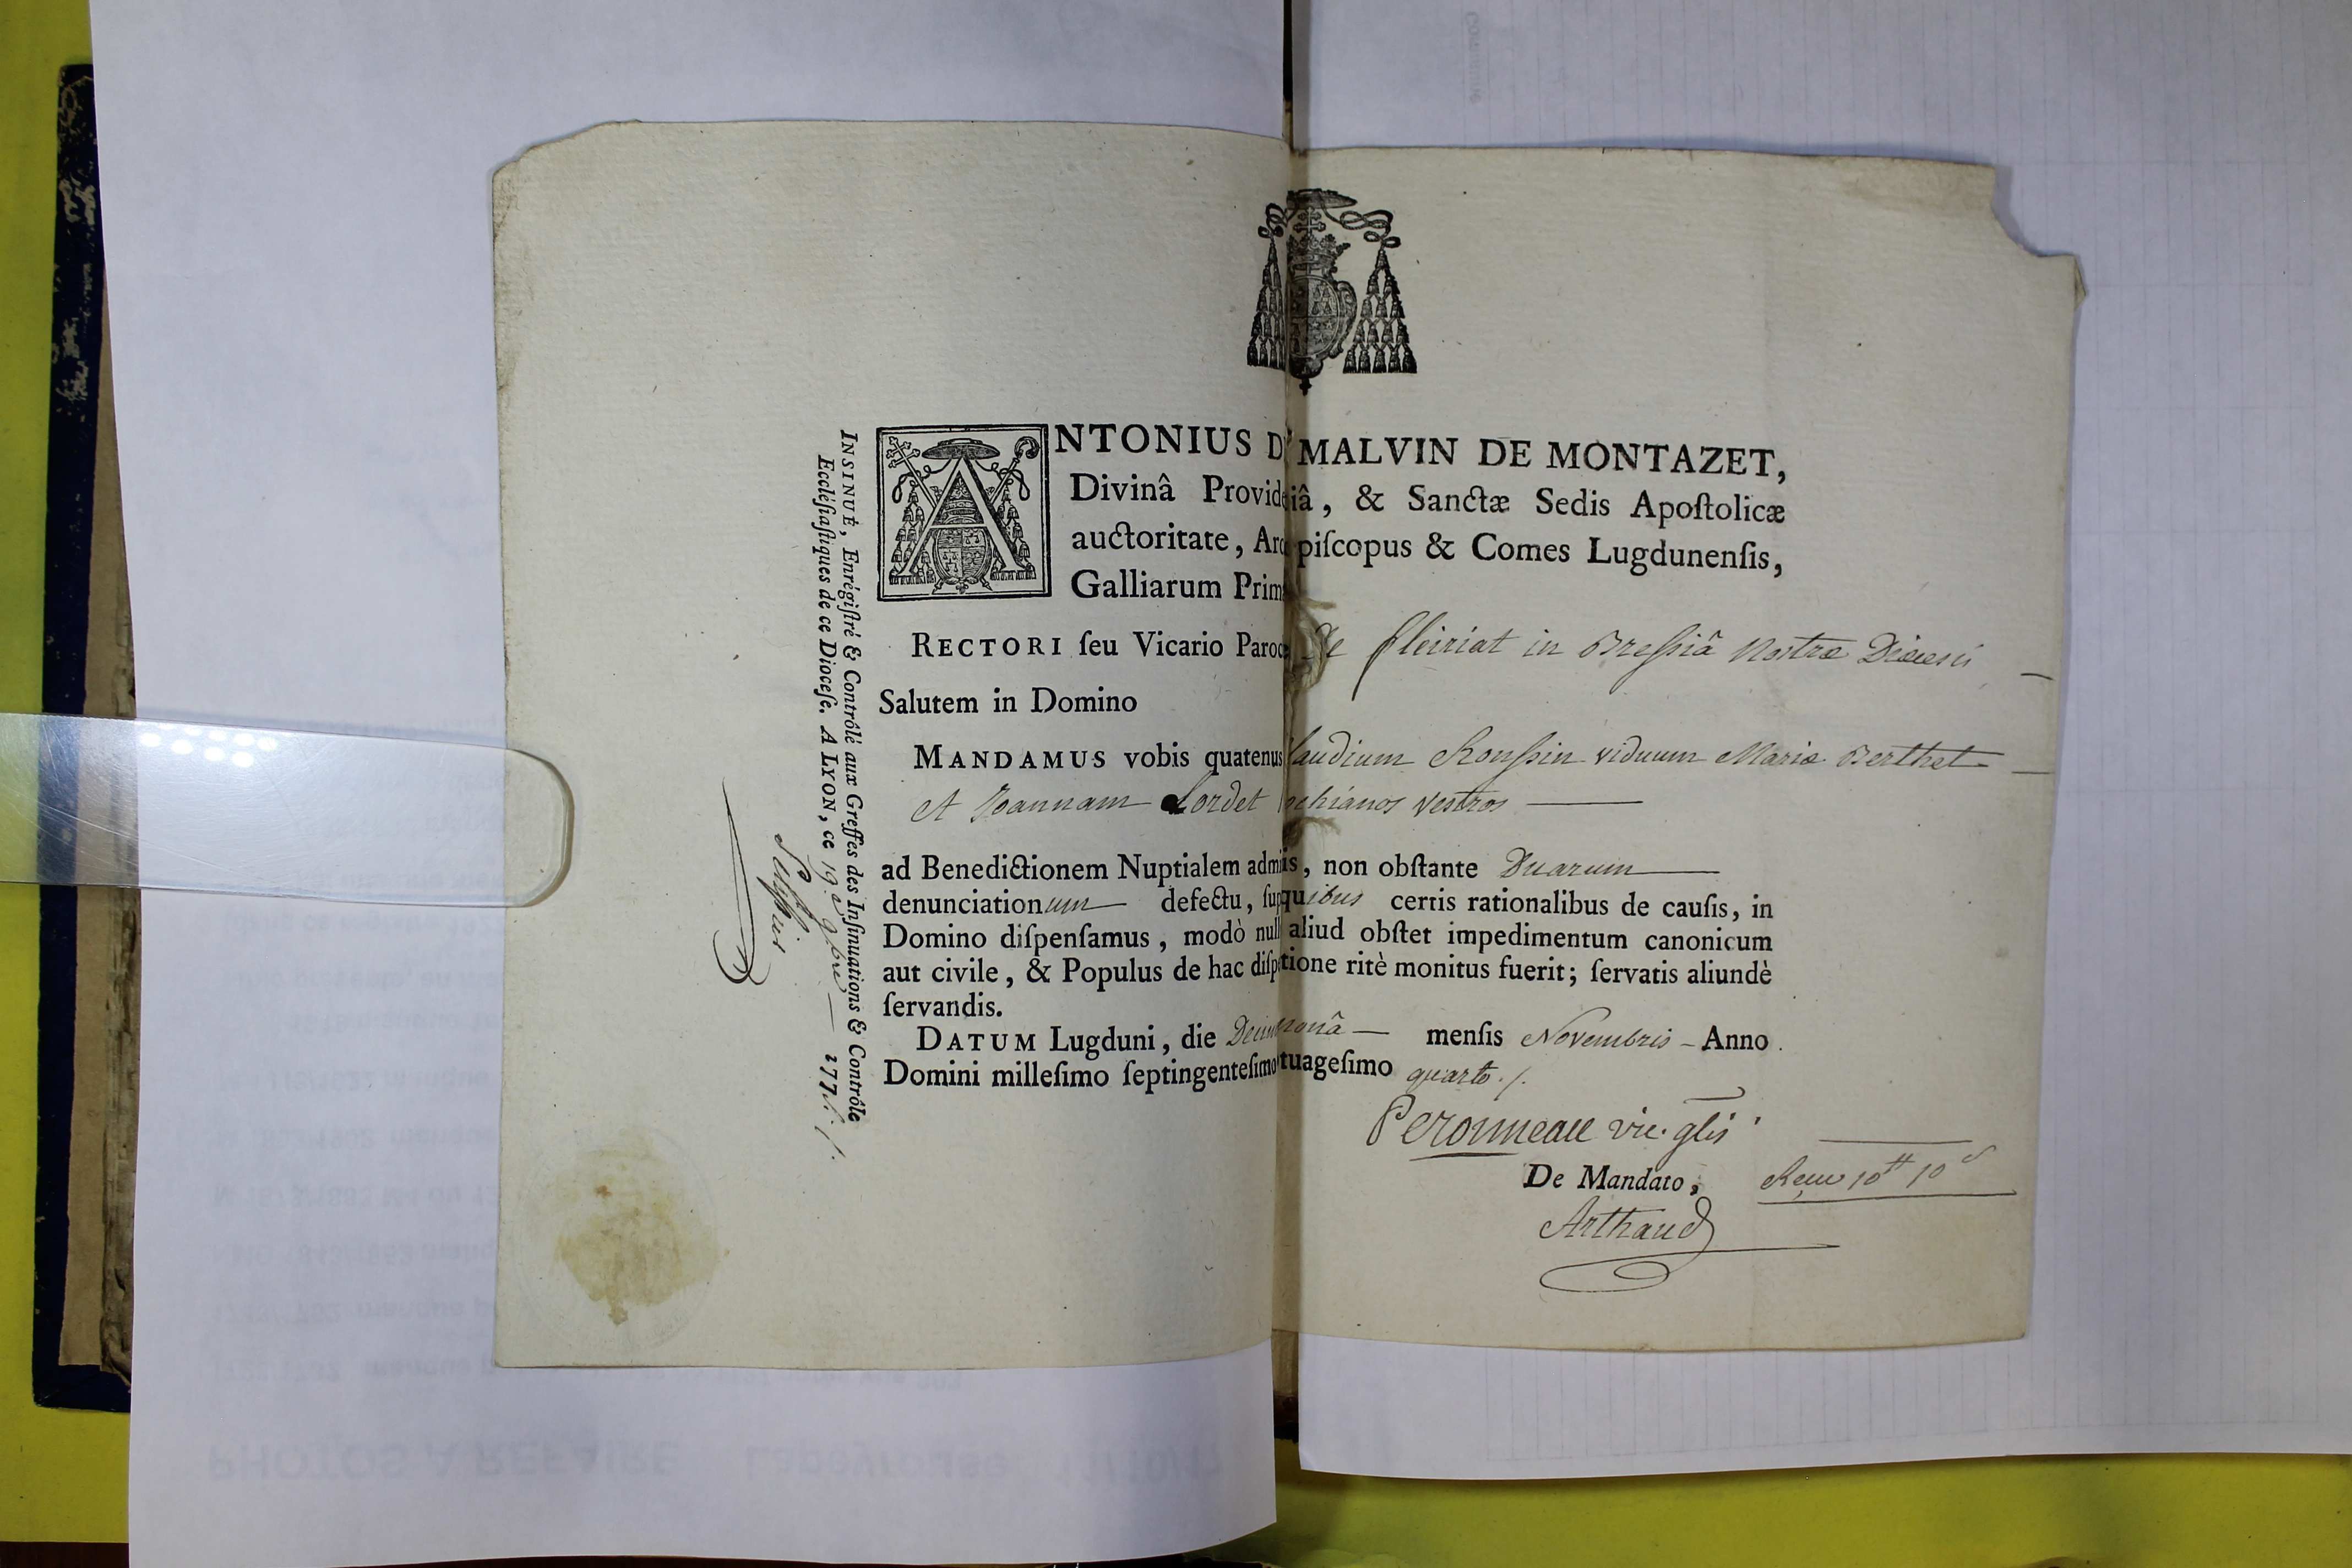 ANTONIUS D MALVIN DE MONTAZET,
Divinâ Provid iâ, & Sanctæ Sedis Apoſtolicæ
auctoritate, Arc piſcopus & Comes Lugdunenſis,
Galliarum Prim
RECTORI ſeu Vicario Paroc De fleiriat in Breſsiâ Nostræ Diœcesis
Salutem in Domino
MANDAMUS vobis quatenus laudium Rouſsin viduum Mariæ Berthet
et Joannam Lordet chianos vestros
ad Benedictionem Nuptialem admi is, non obſtante Duarum
denunciationum defectu, ſup quibus certis rationalibus de cauſis, in
Domino diſpenſamus, modò null aliud obſtet impedimentum canonicum
aut civile, & Populus de hac diſp tione ritè monitus fuerit; ſervatis aliundè
ſervandis.
DATUM Lugduni, die Decim nonâ menſis Novembris Anno
Domini milleſimo ſeptingenteſimo tuageſimo quarto ./.
Peronneau vic. glis
De Mandato, Reçu 10tt 10s
Arthaud
INSINUÉ, Enrégiſtré & Contrôlé aux Greffes des Inſinuations & Contrôle
Eccléſiaſtiques de ce Dioceſe. A LYON, ce 19e 9bre 177